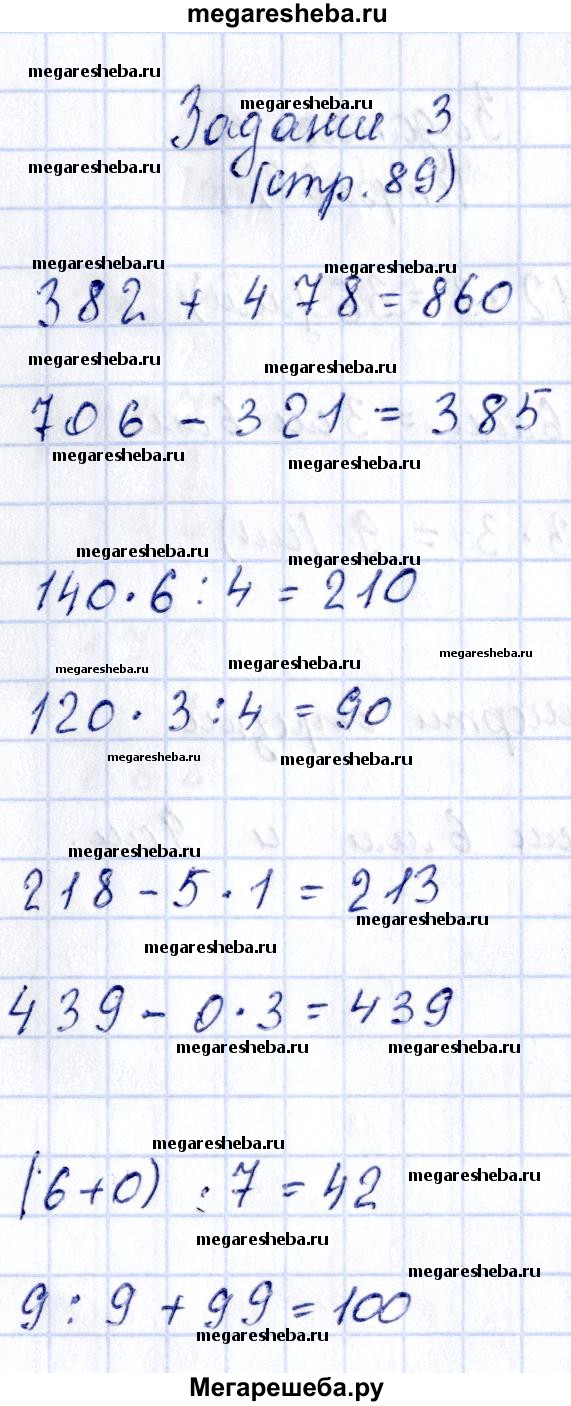 megaresheba.ru
megaresheba.ru
megaresheba.ru
Задании 3
megaresheba.ru
(стр. 89)
megaresheba.ru megaresheba.ru
382 + 478 = 860
megaresheba.ru megaresheba.ru
706 - 321 = 385
megaresheba.ru megaresheba.ru
megaresheba.ru megaresheba.ru
140 · 6 : 4 = 210
megaresheba.ru megaresheba.ru megaresheba.ru
120 · 3 : 4 = 90
megaresheba.ru megaresheba.ru
megaresheba.ru
218 - 5 · 1 = 213
megaresheba.ru
megaresheba.ru
439 - 0 · 3 = 439
megaresheba.ru megaresheba.ru
megaresheba.ru
megaresheba.ru
(6+0) : 7 = 42
megaresheba.ru
megaresheba.ru
9 : 9 + 99 = 100
megaresheba.ru
Мегарешеба.ру